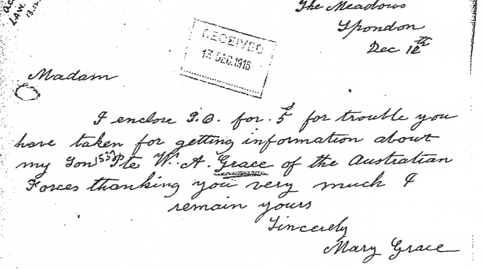 The Meadows
Spondon
Dec 12th
RECEIVED
13 DEC. 1918
Madam
I enclose P.O. for for trouble you
have taken for getting information about
my Son Pte W. A. Grace of the Australian
Forces thanking you very much I
remain yours
Sincerely
Mary Grace